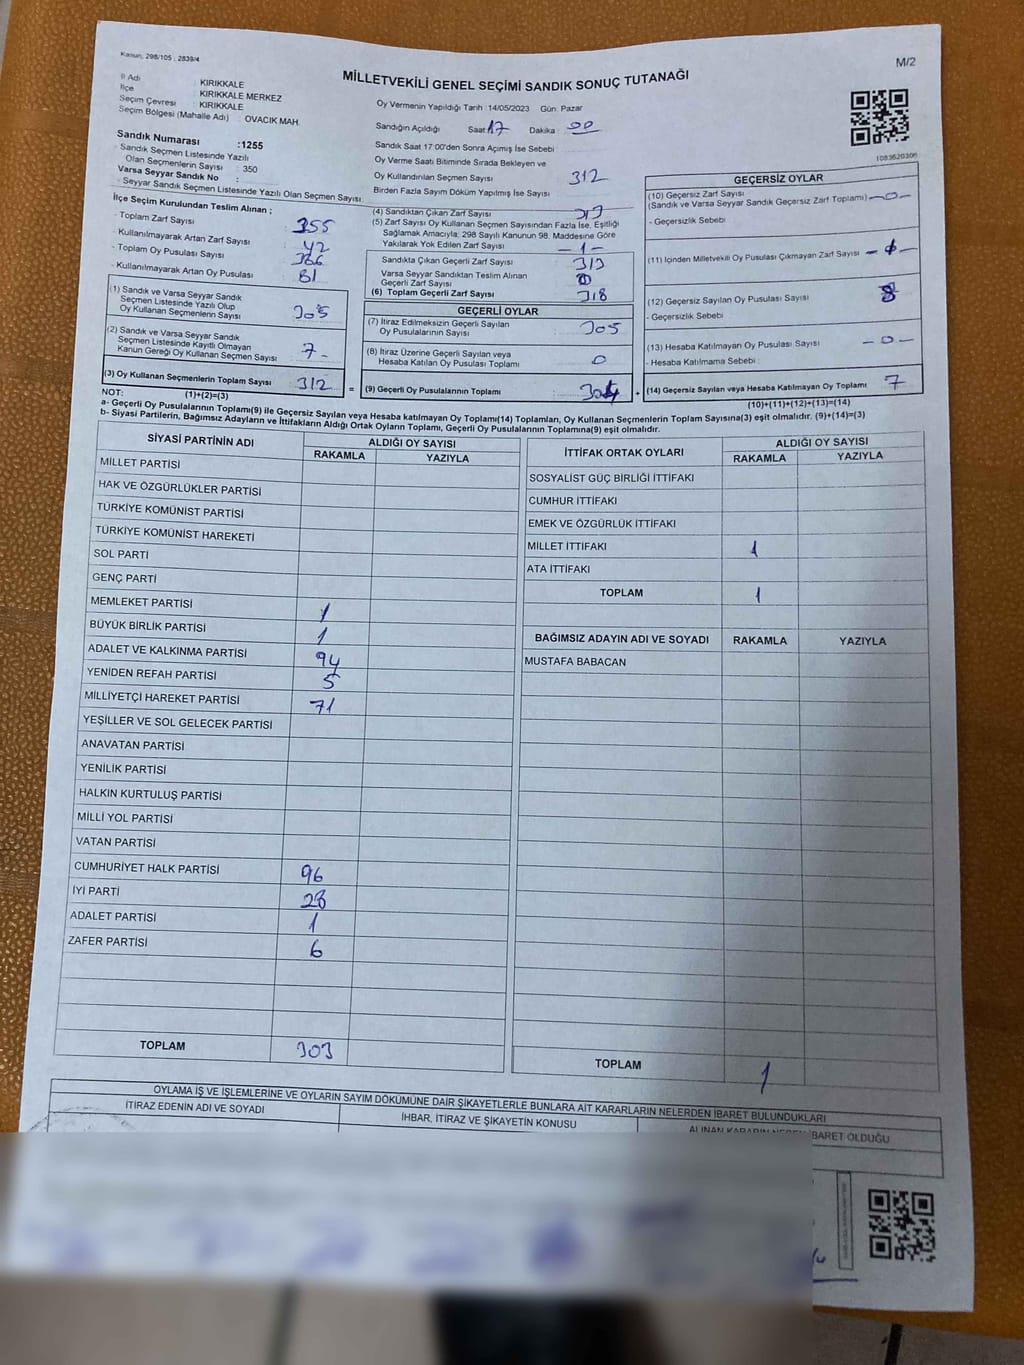 Kanun, 298/105 , 2839/4
M/2
MİLLETVEKİLİ GENEL SEÇİMİ SANDIK SONUÇ TUTANAĞI
İl Adı KIRIKKALE
İlçe KIRIKKALE MERKEZ
Seçim Çevresi : KIRIKKALE
Seçim Bölgesi (Mahalle Adı) : OVACIK MAH.
Sandık Numarası :1255
- Sandık Seçmen Listesinde Yazılı
Olan Seçmenlerin Sayısı : 350
Varsa Seyyar Sandık No :
- Seyyar Sandık Seçmen Listesinde Yazılı Olan Seçmen Sayısı :
İlçe Seçim Kurulundan Teslim Alınan ;
- Toplam Zarf Sayısı : 355
- Kullanılmayarak Artan Zarf Sayısı : 42
- Toplam Oy Pusulası Sayısı : 386
- Kullanılmayarak Artan Oy Pusulası : 81
(1) Sandık ve Varsa Seyyar Sandık
Seçmen Listesinde Yazılı Olup
Oy Kullanan Seçmenlerin Sayısı : 305
(2) Sandık ve Varsa Seyyar Sandık
Seçmen Listesinde Kayıtlı Olmayan
Kanun Gereği Oy Kullanan Seçmen Sayısı : 7-
(3) Oy Kullanan Seçmenlerin Toplam Sayısı : 312
Oy Vermenin Yapıldığı Tarih :14/05/2023 Gün: Pazar
Sandığın Açıldığı Saat: 17 Dakika : 00
Sandık Saat 17:00'den Sonra Açımış İse Sebebi
Oy Verme Saati Bitiminde Sırada Bekleyen ve
Oy Kullandırılan Seçmen Sayısı : 312
Birden Fazla Sayım Döküm Yapılmış İse Sayısı
(4) Sandıktan Çıkan Zarf Sayısı : 313
(5) Zarf Sayısı Oy Kullanan Seçmen Sayısından Fazla İse, Eşitliği
Sağlamak Amacıyla; 298 Sayılı Kanunun 98. Maddesine Göre
Yakılarak Yok Edilen Zarf Sayısı : - 1 -
Sandıkta Çıkan Geçerli Zarf Sayısı : 313
Varsa Seyyar Sandıktan Teslim Alınan
Geçerli Zarf Sayısı :
(6) Toplam Geçerli Zarf Sayısı : 318
GEÇERLİ OYLAR
(7) İtiraz Edilmeksizin Geçerli Sayılan
Oy Pusulalarının Sayısı : 305
(8) İtiraz Üzerine Geçerli Sayılan veya
Hesaba Katılan Oy Pusulası Toplamı : 0
= (9) Geçerli Oy Pusulalarının Toplamı : 304 +
1083620306
GEÇERSİZ OYLAR
(10) Geçersiz Zarf Sayısı
(Sandık ve Varsa Seyyar Sandık Geçersiz Zarf Toplamı) - 0 -
- Geçersizlik Sebebi
(11) İçinden Milletvekili Oy Pusulası Çıkmayan Zarf Sayısı :
(12) Geçersiz Sayılan Oy Pusulası Sayısı :
- Geçersizlik Sebebi
(13) Hesaba Katılmayan Oy Pusulası Sayısı : - 0 -
- Hesaba Katılmama Sebebi :
(14) Geçersiz Sayılan veya Hesaba Katılmayan Oy Toplamı : 7
NOT: (1)+(2)=(3) (10)+(11)+(12)+(13)=(14)
a- Geçerli Oy Pusulalarının Toplamı(9) ile Geçersiz Sayılan veya Hesaba katılmayan Oy Toplamı(14) Toplamları, Oy Kullanan Seçmenlerin Toplam Sayısına(3) eşit olmalıdır. (9)+(14)=(3)
b- Siyasi Partilerin, Bağımsız Adayların ve İttifakların Aldığı Ortak Oyların Toplamı, Geçerli Oy Pusulalarının Toplamına(9) eşit olmalıdır.
SİYASİ PARTİNİN ADI ALDIĞI OY SAYISI
RAKAMLA YAZIYLA
MİLLET PARTİSİ
HAK VE ÖZGÜRLÜKLER PARTİSİ
TÜRKİYE KOMÜNİST PARTİSİ
TÜRKİYE KOMÜNİST HAREKETİ
SOL PARTİ
GENÇ PARTİ
MEMLEKET PARTİSİ 1
BÜYÜK BİRLİK PARTİSİ 1
ADALET VE KALKINMA PARTİSİ 94
YENİDEN REFAH PARTİSİ 5
MİLLİYETÇİ HAREKET PARTİSİ 71
YEŞİLLER VE SOL GELECEK PARTİSİ
ANAVATAN PARTİSİ
YENİLİK PARTİSİ
HALKIN KURTULUŞ PARTİSİ
MİLLİ YOL PARTİSİ
VATAN PARTİSİ
CUMHURİYET HALK PARTİSİ 96
İYİ PARTİ 28
ADALET PARTİSİ 1
ZAFER PARTİSİ 6
TOPLAM 303
İTTİFAK ORTAK OYLARI ALDIĞI OY SAYISI
RAKAMLA YAZIYLA
SOSYALİST GÜÇ BİRLİĞİ İTTİFAKI
CUMHUR İTTİFAKI
EMEK VE ÖZGÜRLÜK İTTİFAKI
MİLLET İTTİFAKI 1
ATA İTTİFAKI
TOPLAM 1
BAĞIMSIZ ADAYIN ADI VE SOYADI RAKAMLA YAZIYLA
MUSTAFA BABACAN
TOPLAM 1
OYLAMA İŞ VE İŞLEMLERİNE VE OYLARIN SAYIM DÖKÜMÜNE DAİR ŞİKAYETLERLE BUNLARA AİT KARARLARIN NELERDEN İBARET BULUNDUKLARI
İTİRAZ EDENİN ADI VE SOYADI
İHBAR, İTİRAZ VE ŞİKAYETİN KONUSU
ALINAN KARARIN NEDEN İBARET OLDUĞU